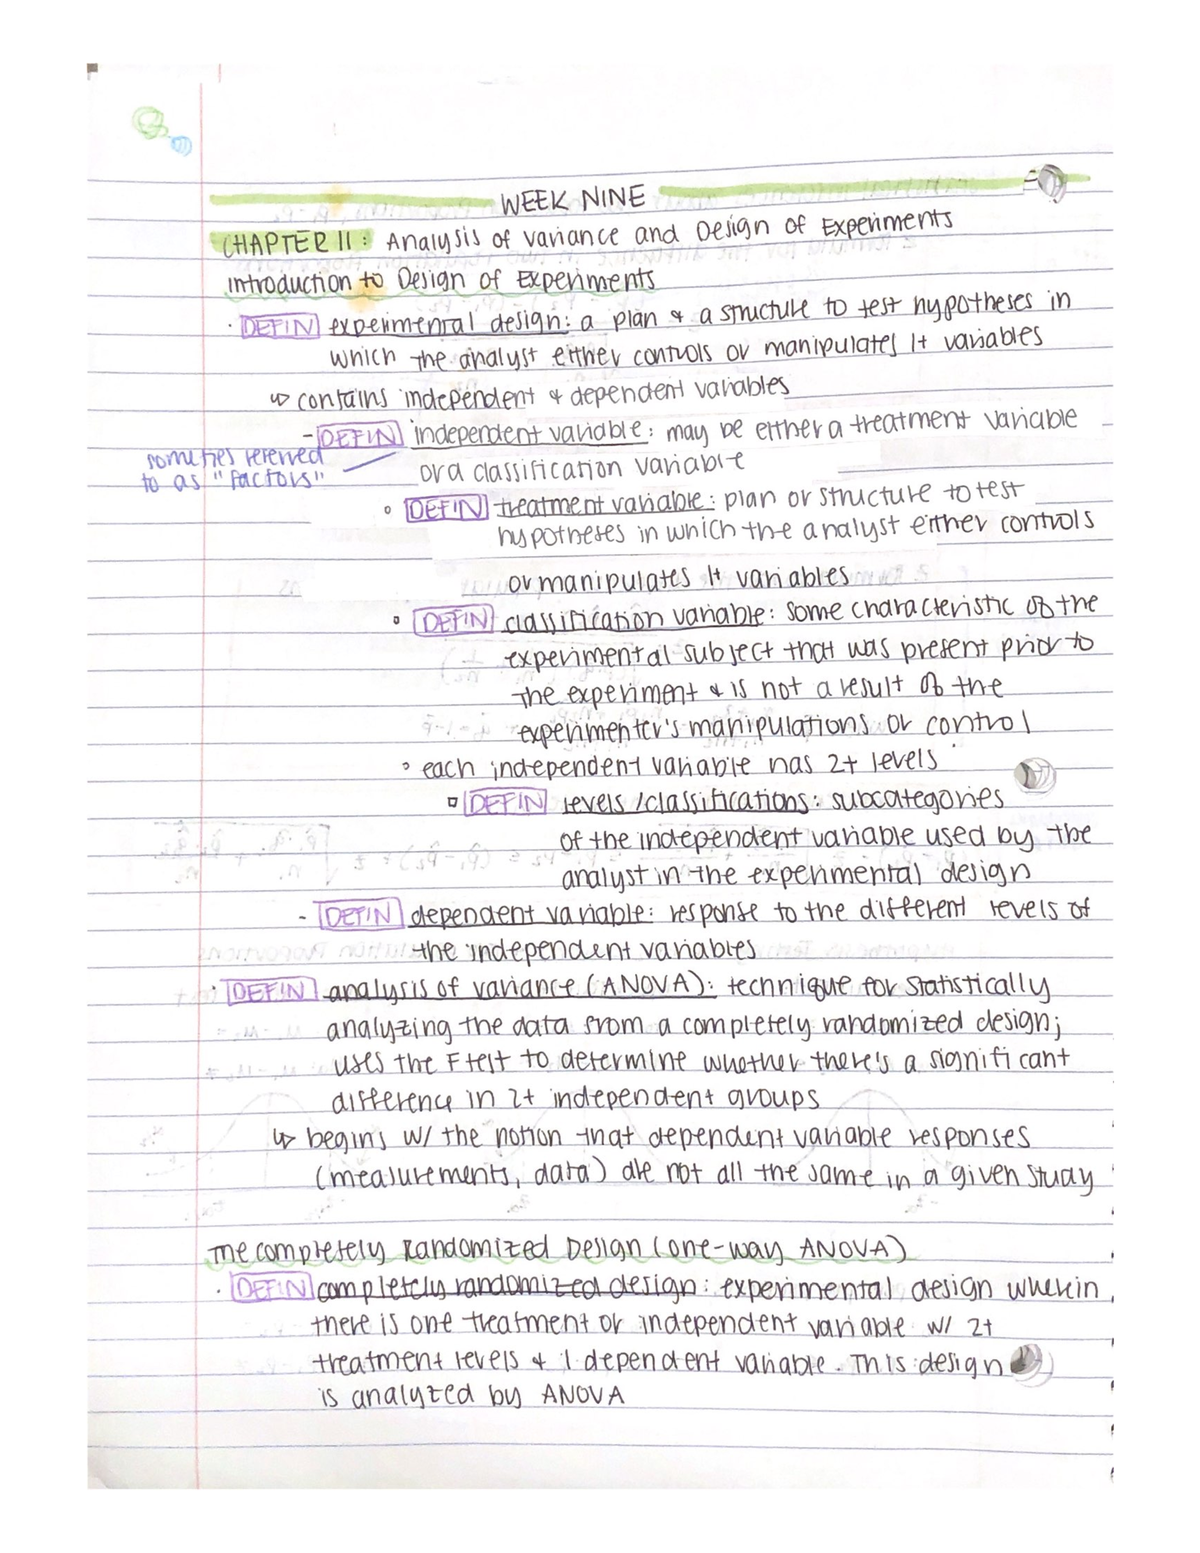 WEEK NINE
CHAPTER 11: Analysis of Variance and Design of Experiments
Introduction to Design of Experiments
· DEFIN experimental design: a plan & a structure to test hypotheses in
which the analyst either controls or manipulates 1+ variables
↳ contains independent & dependent variables
- DEFIN independent variable: may be either a treatment variable
or a classification variable
someties refered
to as "factors"
◦ DEFIN treatment variable: plan or structure to test
hypotheses in which the analyst either controls
or manipulates 1+ variables
◦ DEFIN classification variable: some characteristic of the
experimental subject that was present prior to
the experiment & is not a result of the
experimenter's manipulations or control
◦ each independent variable has 2+ levels
▫ DEFIN levels/classifications: subcategories
of the independent variable used by the
analyst in the experimental design
- DEFIN dependent variable: response to the different levels of
the independent variables
· DEFIN analysis of variance (ANOVA): technique for statistically
analyzing the data from a completely randomized design;
uses the F test to determine whether there's a significant
difference in 2+ independent groups
↳ begins w/ the notion that dependent variable responses
(measurements, data) are not all the same in a given study
The completely Randomized Design (one-way ANOVA)
· DEFIN completely randomized design: experimental design wherein
there is one treatment or independent variable w/ 2+
treatment levels & 1 dependent variable. This design
is analyzed by ANOVA